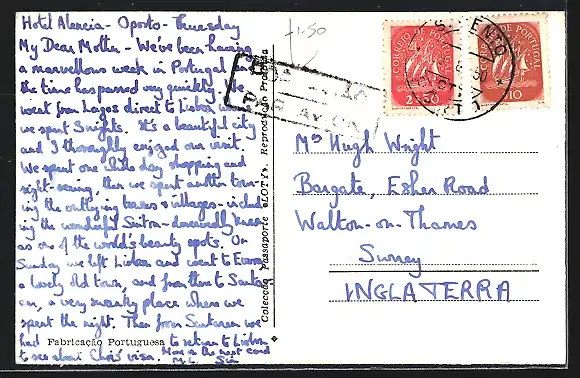 Hotel Aleneia - Oporto - Thursday
My Dear Mother - We've been having
a marvellous week in Portugal
the time has passed very quickly. We
went from Lagos direct to Lisbon where
we spent 3 nights. It's a beautiful city
and I thoroughly enjoyed our visit.
We spent one whole day shopping and
sight-seeing, then we spent another tour-
ing the outlying towns & villages - includ-
ing the wonderful Sintra - deservedly known
as one of the world's beauty spots. On
Sunday we left Lisbon and went to Evora
a lovely old town, and from there to Santar-
em, a very swanky place where we
spent the night. Then from Santarem we
had to return to Lisbon
to see about Chris' visa. More on the next card
M.L.
Fabricação Portuguesa
Colecção Passaporte «LOTY». Reprodução Proibida
+1.50
POR AVION
CORREIO DE PORTUGAL
2$50
CORREIO DE PORTUGAL
$10
Mrs Hugh Wright
Bargate, Esher Road
Walton-on-Thames
Surrey
INGLATERRA